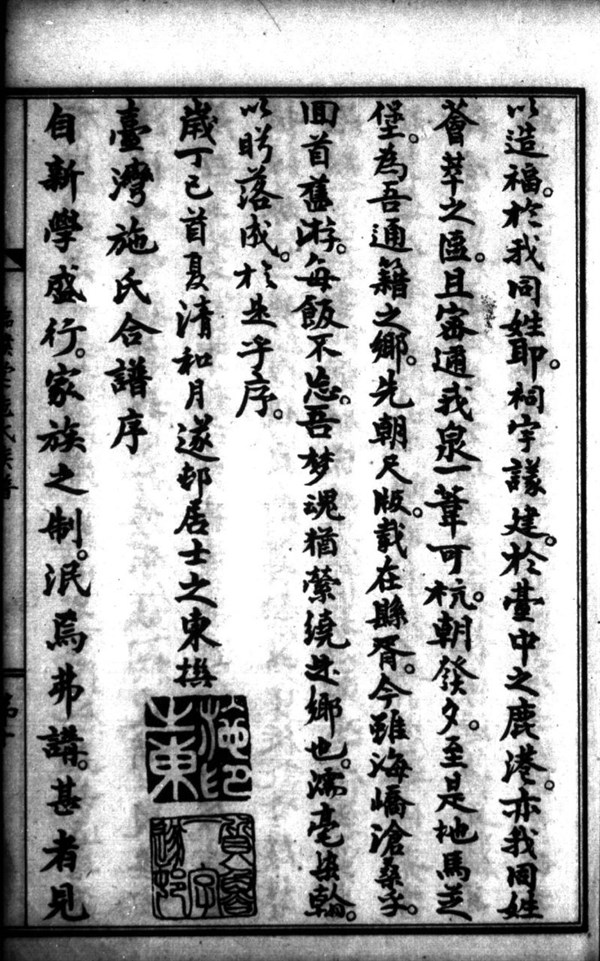 以造福。於我同姓耶。祠宇議建。於臺中之鹿港。亦我同姓
薈萃之區。且密通我泉一葦可杭。朝發夕。至是地馬芝
堡。為吾通籍之鄉。先朝尺版。載在縣胥。今雖海嶠滄桑
回首舊游。每飯不忘。吾梦魂猶縈繞是鄉也。濡毫染翰。
以盻落成。於是乎序。
歲丁巳首夏清和月遂邨居士之東撰
施印之東
一字遂邨
臺灣施氏合譜序
自新學盛行。家族之制。泯焉弗講。甚者見